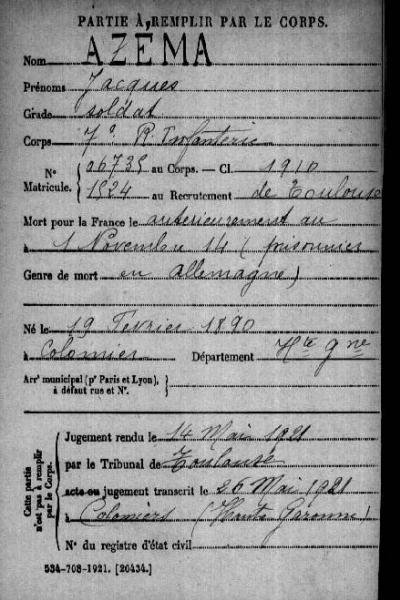 PARTIE À REMPLIR PAR LE CORPS.
Nom AZEMA
Prénoms Jacques
Grade soldat
Corps 7e R. Infanterie
N° Matricule. { 06735 au Corps. — Cl. 1910
1524 au Recrutement de Toulouse
Mort pour la France le antérieurement au
à 1 Novembre 14 ( prisonnier
Genre de mort en allemagne )
Né le 19 Fevrier 1890
à Colomier Département Hte Gne
Arr' municipal (p' Paris et Lyon), à défaut rue et N°. }
Cette partie n'est pas à remplir par le Corps.
Jugement rendu le 14 Mai 1921
par le Tribunal de Toulouse
acte ou jugement transcrit le 26 Mai 1921
à Colomiers (Haute Garonne)
N° du registre d'état civil
534-708-1921. [20434.]